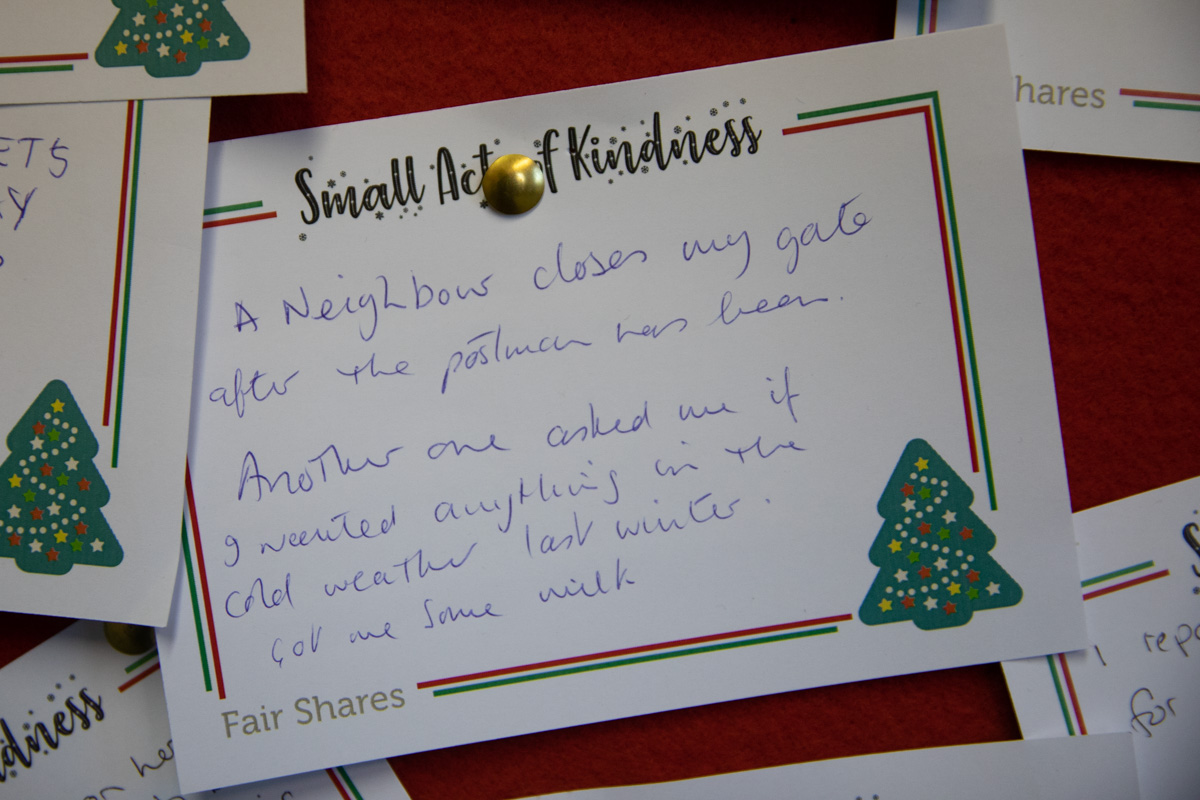 ETS
AY
hares
Small Act of Kindness
A Neighbour closes my gate
after the postman has been.
Another one asked me if
I wanted anything in the
cold weather last winter.
Got me some milk
Fair Shares
dness
her
I repo
for